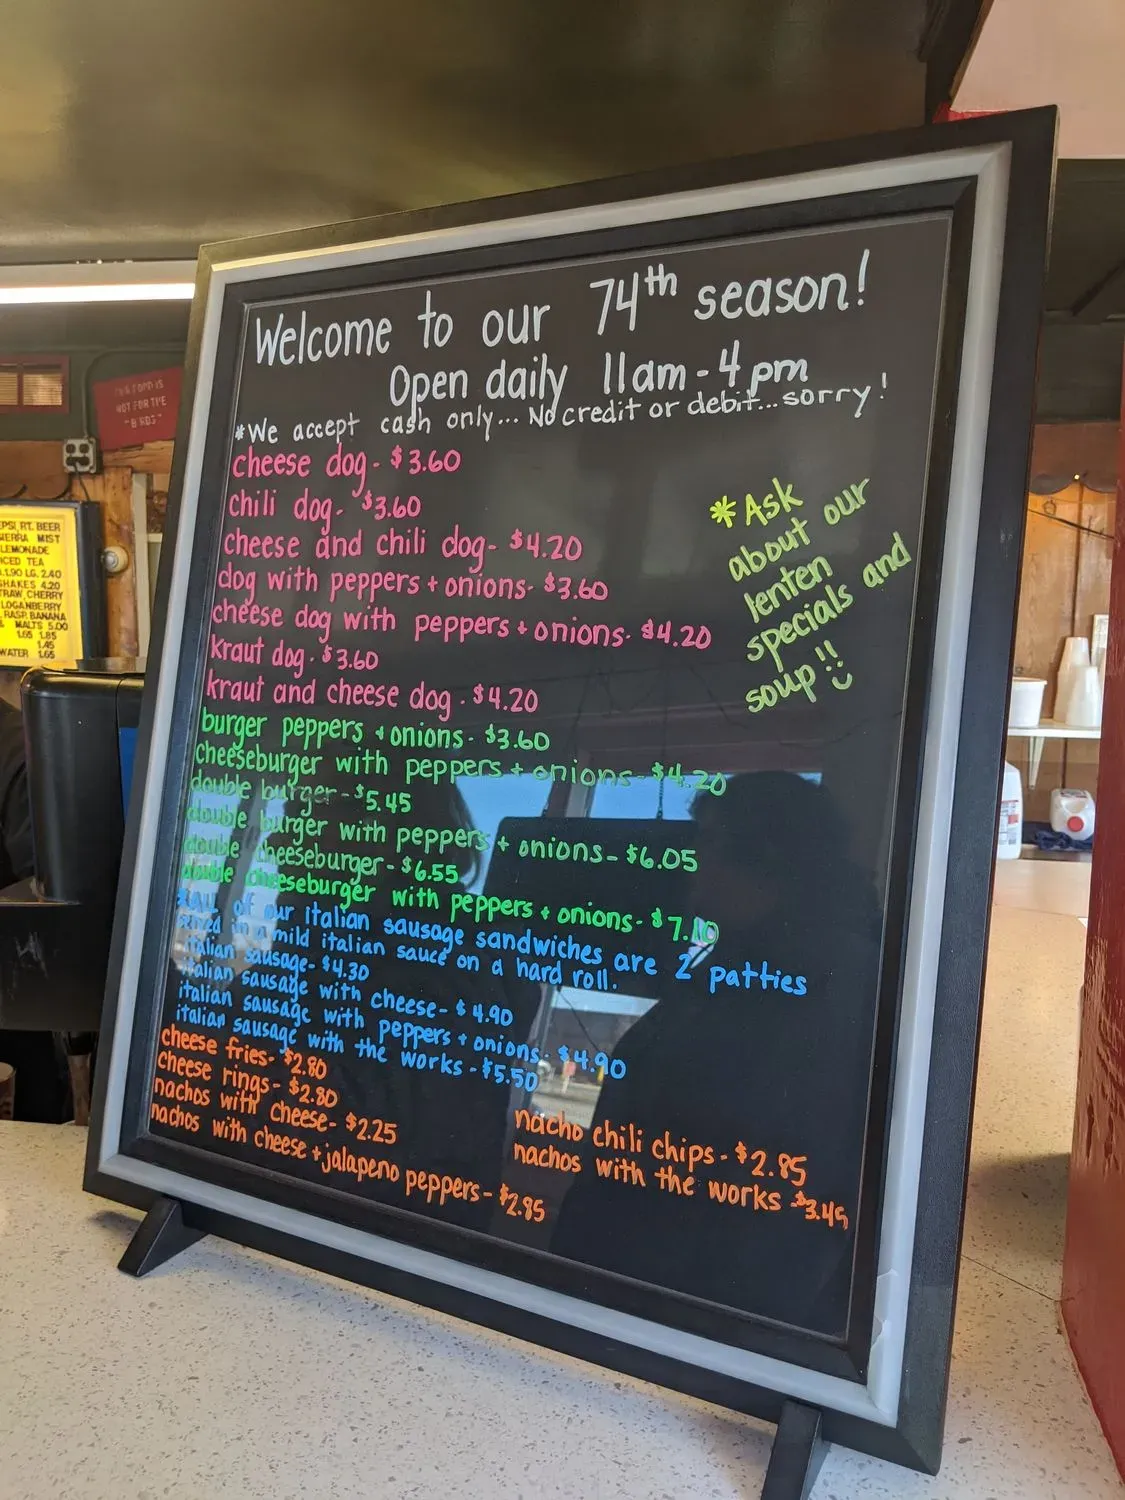 Welcome to our 74th season!
Open daily 11am-4pm
*We accept cash only... No credit or debit...sorry!
cheese dog- $3.60
chili dog- $3.60
cheese and chili dog- $4.20
dog with peppers + onions- $3.60
cheese dog with peppers + onions- $4.20
kraut dog- $3.60
kraut and cheese dog- $4.20
burger peppers + onions- $3.60
cheeseburger with peppers + onions- $4.20
double burger- $5.45
double burger with peppers + onions- $6.05
double cheeseburger- $6.55
double cheeseburger with peppers + onions- $7.10
*All of our italian sausage sandwiches are 2 patties
served in a mild italian sauce on a hard roll.
italian sausage- $4.30
italian sausage with cheese- $4.90
italian sausage with peppers + onions- $4.90
italian sausage with the works- $5.50
cheese fries- $2.80
cheese rings- $2.80
nachos with cheese- $2.25
nachos with cheese + jalapeno peppers- $2.85
nacho chili chips- $2.85
nachos with the works $3.45
*Ask
about our
lenten
specials and
soup!!
NOT FOR THE
EPSI, RT. BEER
IERRA MIST
LEMONADE
ICED TEA
1.90 LG. 2.40
SHAKES 4.20
TRAW, CHERRY
LOGANBERRY
RASP. BANANA
MALTS 5.00
1.65 1.85
1.45
WATER 1.65